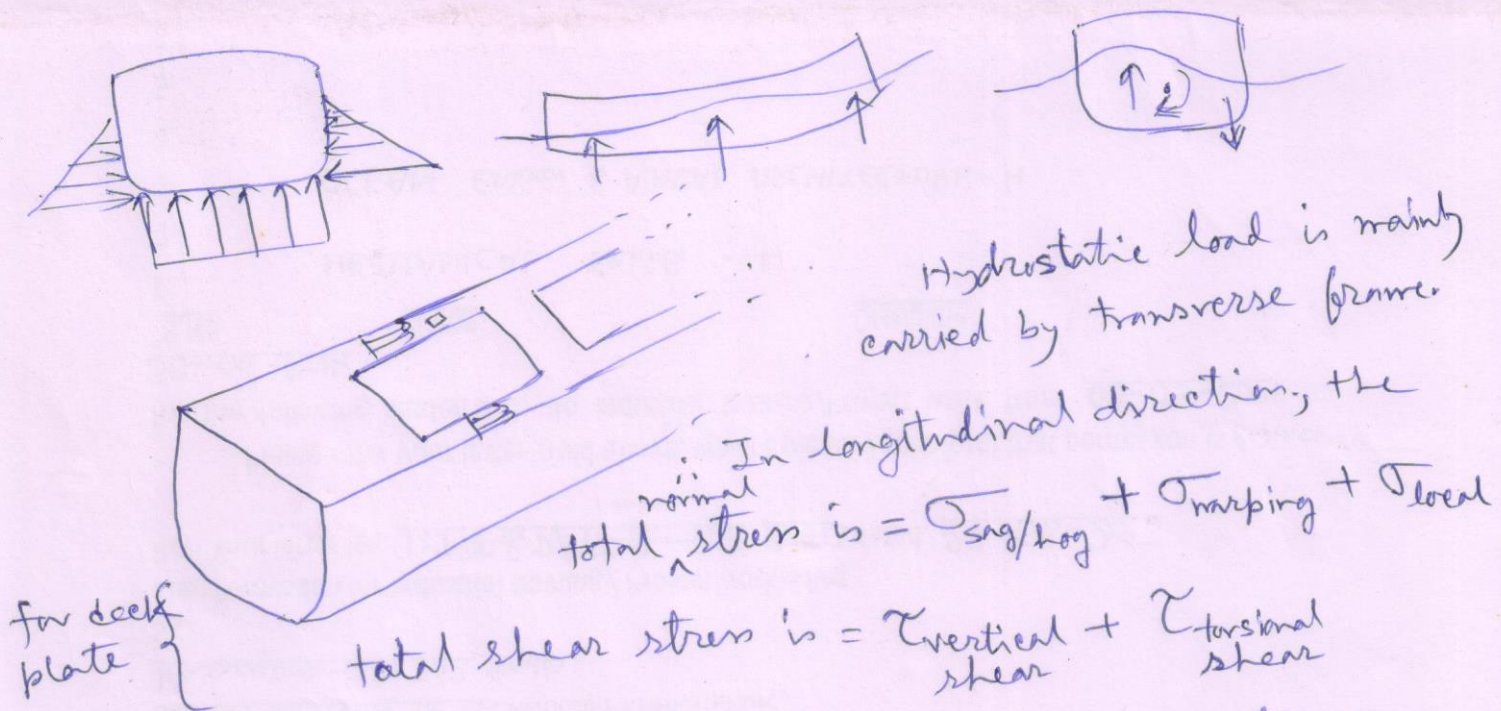 Hydrostatic load is mainly
carried by transverse frame.
∴ In longitudinal direction, the
total normal stress is = σ sag/hog + σ warping + σ local
for deck
plate {
total shear stress is = τ vertical shear + τ torsional shear